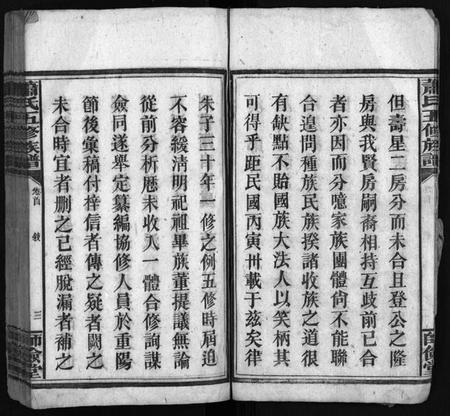 蕭氏五修族譜
但壽星二房分而未合且登公之隆
房與我賢房嗣裔相持互歧前已合
者亦因而分噫家族團體尙不能聯
合遑問種族民族揆諸收族之道很
有缺點不貽國族大法人以笑柄其
可得乎距民國丙寅卅載于茲矣律
師儉堂
朱子三十年一修之例五修時屆迫
不容緩清明祀祖畢族董提議無論
從前分析歷未收入一體合修詢謀
僉同遂舉定纂編協修人員於重陽
節後彙稿付梓信者傳之疑者闕之
未合時宜者刪之已經脫漏者補之
蕭氏五修族譜
卷首
敘
三
師儉堂